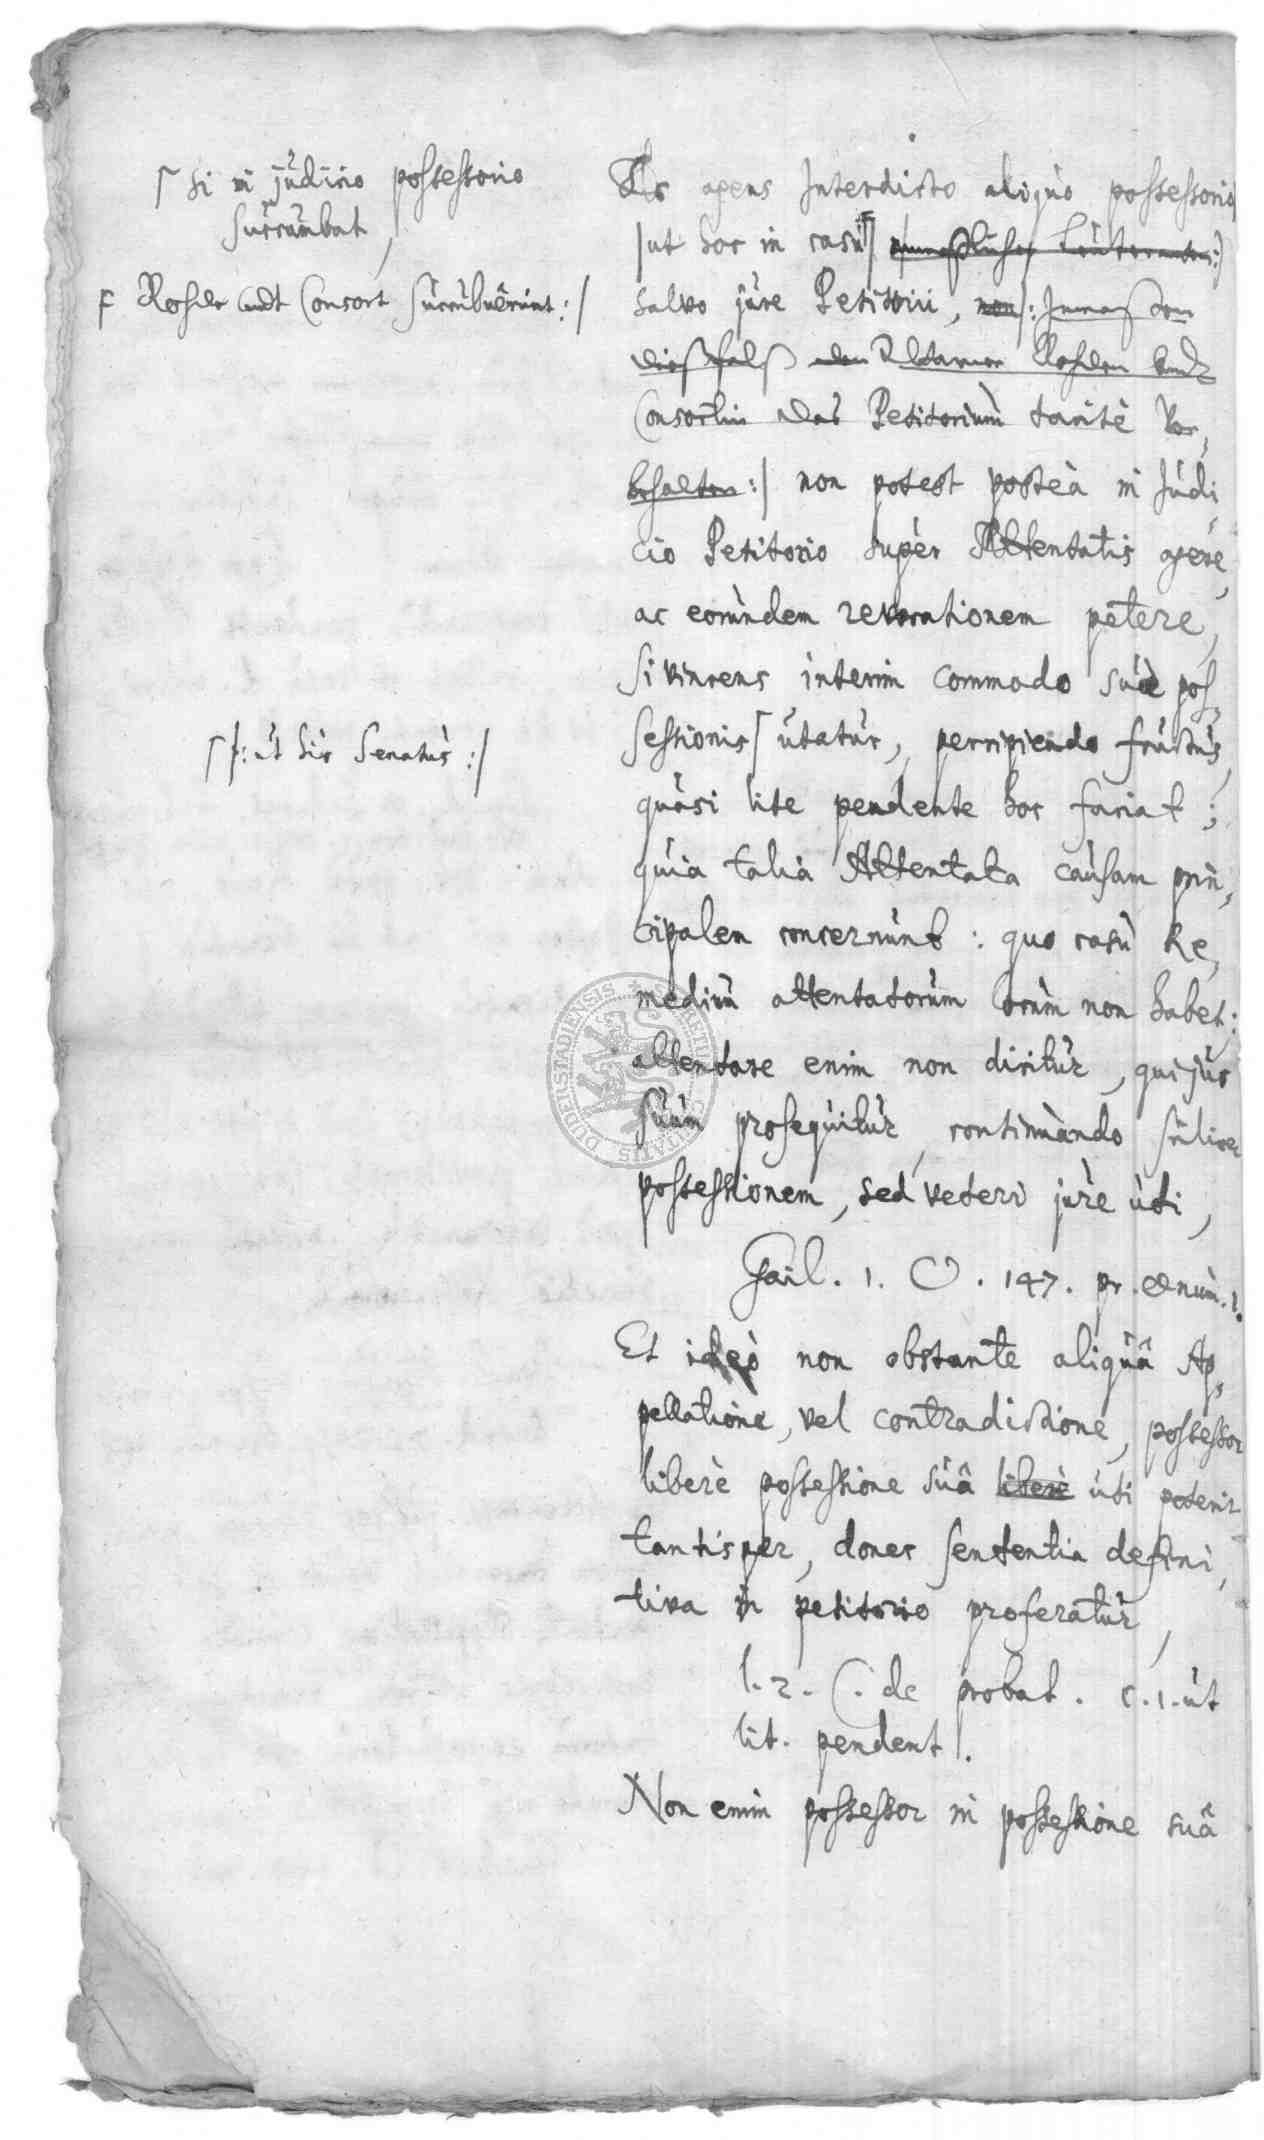 si in judicio possessorio
succumbat,
Kohler undt Consort succubuêrunt :/
/: ut hic Senatus :/
agens Interdicto aliquo possessorio
/ut hoc in casu/
salvo jure Petitorii, non/: Inmaßen
dießfalß den Klägern Kohlern undt
Consorten das Petitorium tacitè vor,
behalten :/ non potest posteà in Judi,
cio Petitorio super Attentatis agere,
ac eorùndem revocationem petere,
Si vincens interim commodo suæ pos,
sessionis utatur, percipiendo fructus,
quasi lite pendente hoc faciat ;
quia talia Attentata causam prin,
cipalem concernunt : quo casu Re,
mediu attentatorum locum non habet ;
attentare enim non dicitur, qui jus
suum prosequitur, continuando
possessionem, sed veteri jure uti,
Gail. 1. O. 147. pr. & num. 1.
Et ideò non obstante aliquâ Ap,
pellatione, vel contradictione, possessor
liberè possessione suâ liberè uti poterit
tantisper, donec sententia defini,
tiva in petitorio proferatur,
l. 2. C. de probat. c. 1. ut
lit. pendent.
Non enim possessor in possessione suâ
DUDERSTADIENSIS